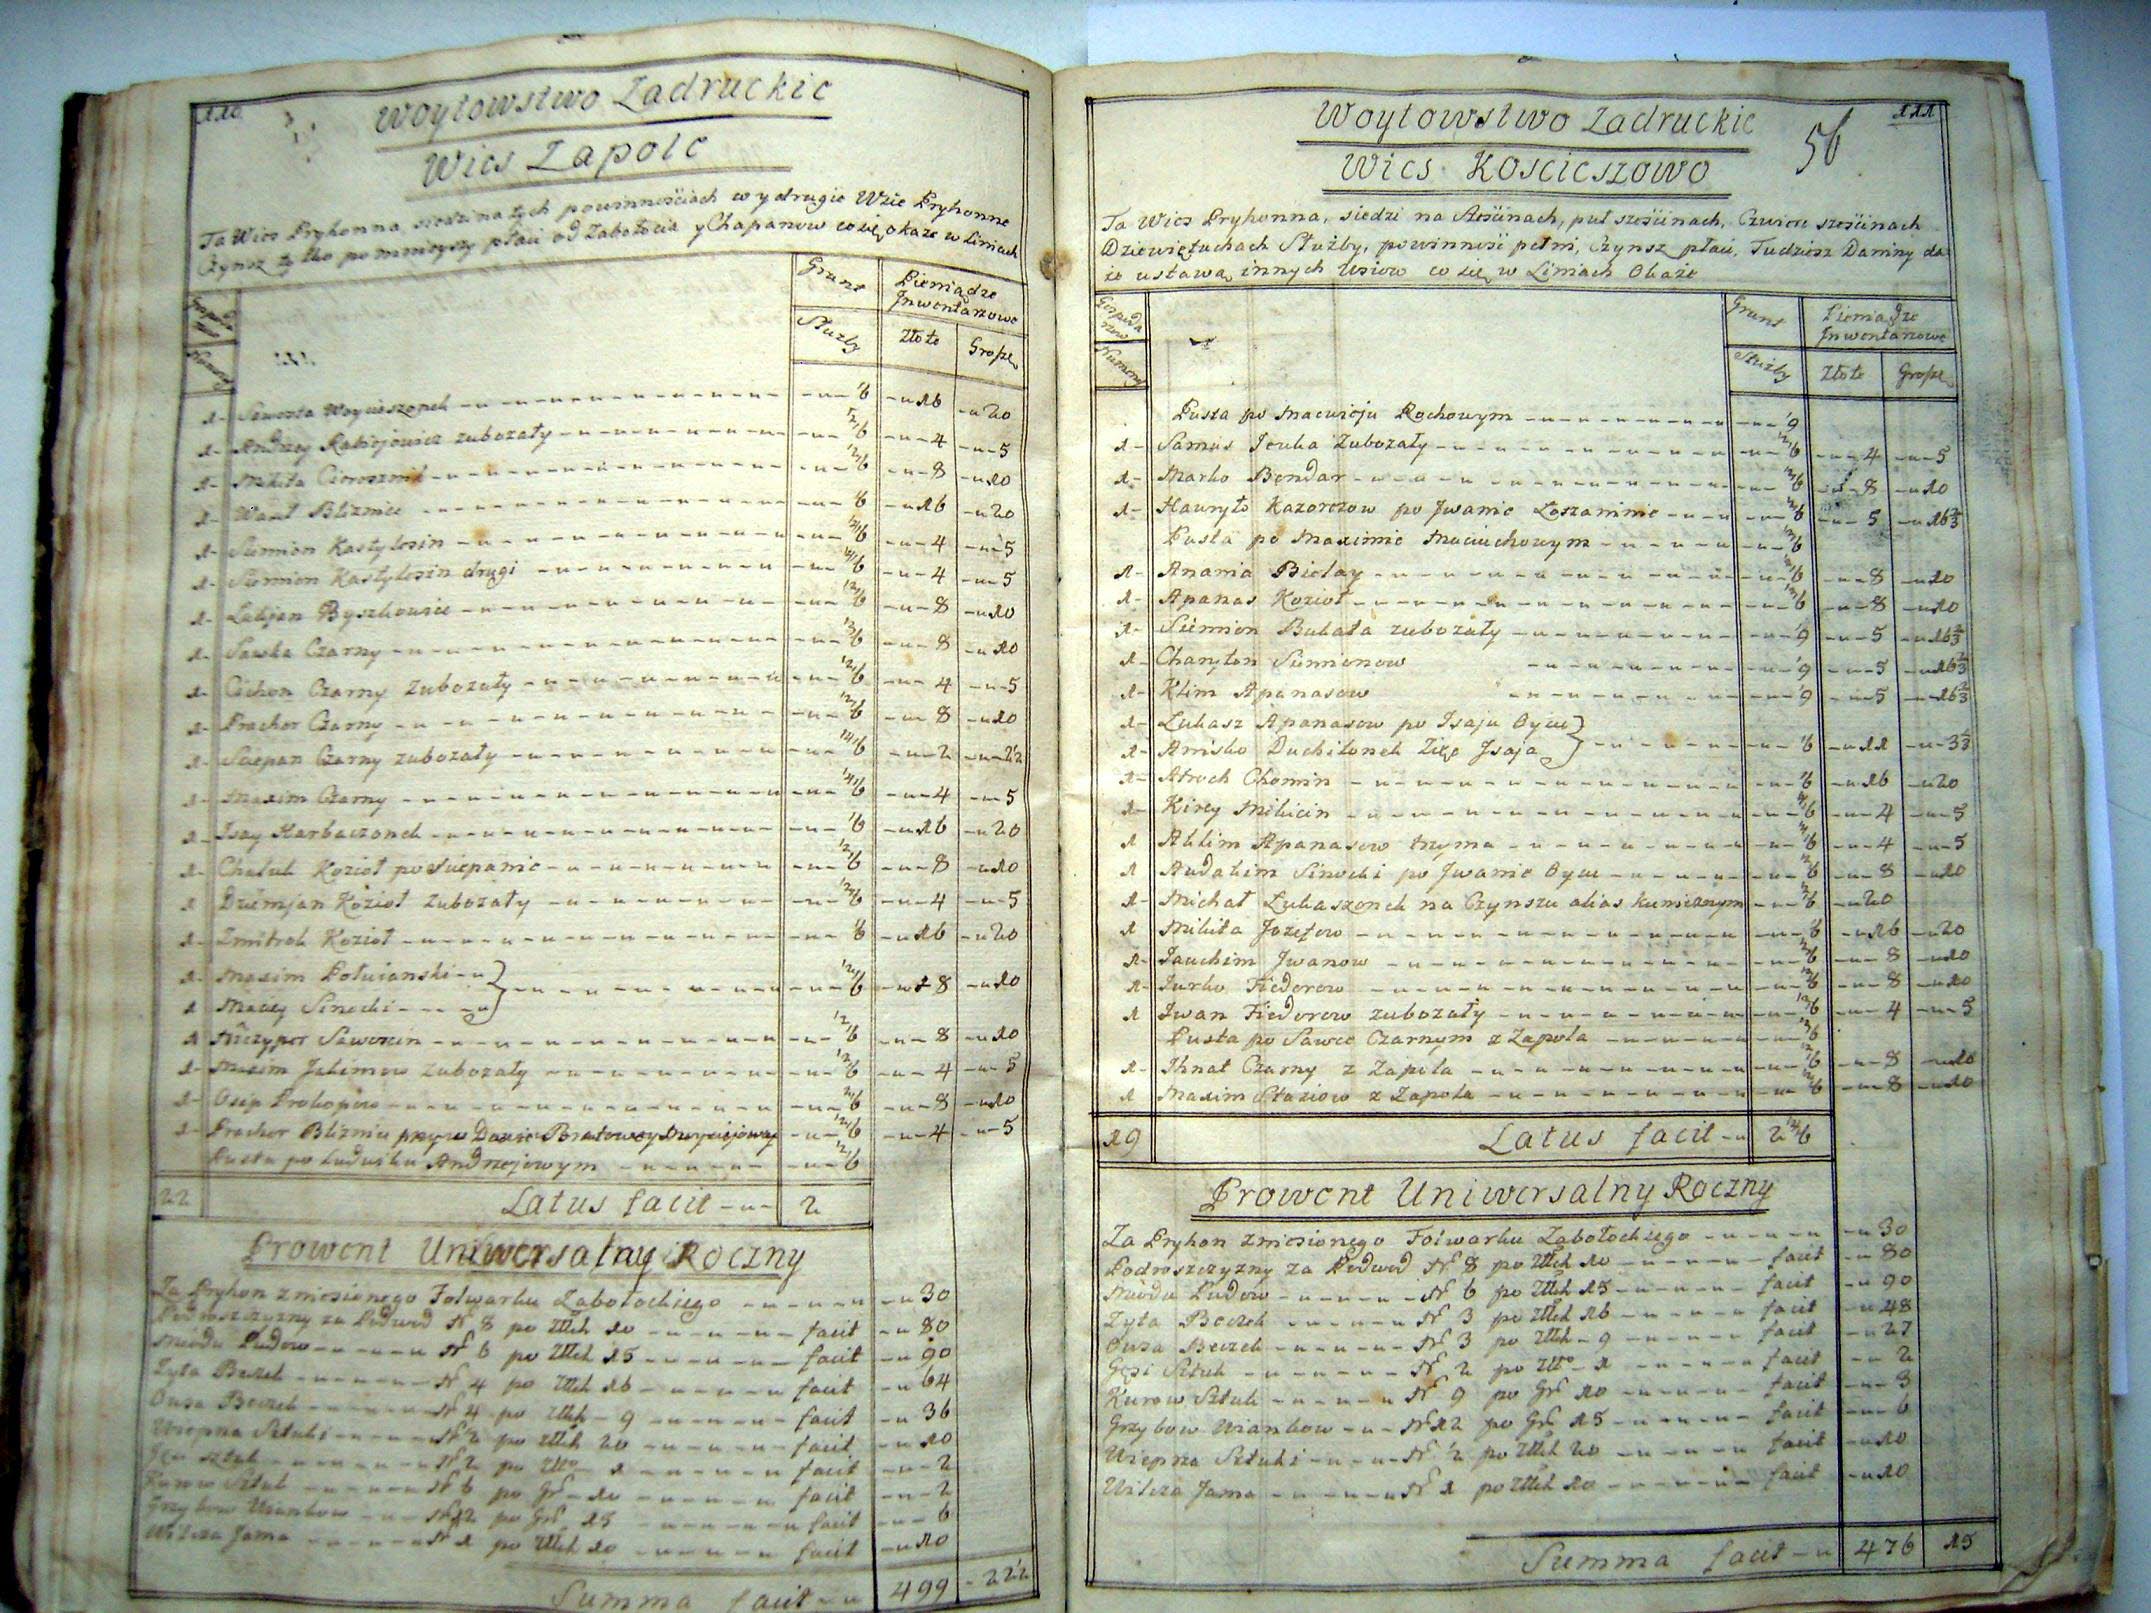 110
Woytowstwo Zadruckie
Wies Zapole
Ta Wies Pryhonna, siedzi na tych powinnościach co y drugie Wsie Pryhonne
Czynsz tylko pomnieyszy płaci od Zabołocia y Chapanow co się okaże w Liniach
Grunt Pieniądze Inwentarzowe
Służby Złote Grosze
1 Woycieszonek 1/6 16 20
1 Andrzey zubożały 4 5
1 Mikita 8 10
1 1/6 16 20
1 Siemion Kastylozin 4 5
1 Siemion Kastylozin drugi 4 5
1 Łukjan Byszkowiec 8 10
1 Sawka Czarny 8 10
1 Cichon Czarny zubożały 4 5
1 Prochor Czarny 8 10
1 Sciepan Czarny zubożały 2
1 Maxim Czarny 4 5
1 Isay Harbaczonek 1/6 16 20
1 Kozioł po Sciepanie 8 10
1 Dziemjan Kozioł zubożały 4 5
1 Zmitrok Kozioł 1/6 16 20
1 Maxim
1 Macey Sinocki 8 10
1 8 10
1 Maxim Jakimow zubożały 4 5
1 Osip Prokopow 8 10
1 Prochor 4 5
Pusta po Andrzejowym
22 Latus facit 2
Prowent Uniwersalny Roczny
Za Pryhon zniesionego Folwarku Zabołockiego 30
Podroszczyzny za Podwod Nr 8 po Złłch 10 facit 80
Miodu Pudow Nr 6 po Złłch 15 facit 90
Zyta Beczek Nr 4 po Złłch 16 facit 64
Owsa Beczek Nr 4 po Złłch 9 facit 36
Wieprza Sztuki Nr ½ po Złłch 20 facit 10
Gęsi Sztuk Nr 2 po Złło 1 facit 2
Kurow Sztuk Nr 6 po Gr 10 facit 2
Grzybow Wiankow Nr 12 po Gr 15 facit 6
Wilcza Jama Nr 1 po Złłch 10 facit 10
Summa facit 499 22½
111
56
Woytowstwo Zadruckie
Wies Kościeszowo
Ta Wies Pryhonna, siedzi na sześcinach, puł sześcinach, Czwierc sześcinach
Dziewiętuchach Służby, powinność pełni, Czynsz płaci, Tudziesz Daniny da
ie ustawą innych Wsiow co się w Liniach Okaże
Gospodarzow Grunt Pieniądze Inwentarzowe
Służby Złote Grosze
Pusta po Macwieju Rochowym 1/9
1 Samus zubożały 4 5
1 Marko Bondar 8 10
1 Hauryło Kazorezow po Jwanie 5 16⅔
Pusta po Maximie
1 Anania Bielay 8 10
1 Apanas Kozioł 8 10
1 Siemion Bukata zubożały 1/9 5 16⅔
1 Charyton Siemionow 1/9 5 16⅔
1 Klim Apanasow 1/9 5 16⅔
1 Łukasz Apanasow po Isaju Oycu
1 Anisko Zięć Jsaja 1/6 11 3⅓
1 Atroch Chomin 1/6 16 20
1 Kirey Mikicin 4 5
1 Apanasow 4 5
1 Audakim Sinocki po Jwanie Oycu 8 10
1 Michał Łukaszonek na Czynszu alias kunicznym 20
1 Mikita Jozefow 1/6 16 20
1 Jauchim Jwanow 8 10
1 Jurko Fiedorow 8 10
1 Jwan Fiedorow zubożały 4 5
Pusta po Sawce Czarnym z Zapola
1 Jhnat Czarny z Zapola 8 10
1 Maxim Staziow z Zapola 8 10
19 Latus facit 2
Prowent Uniwersalny Roczny
Za Pryhon zniesionego Folwarku Zabołockiego 30
Podroszczyzny za Podwod Nr 8 po Złłch 10 facit 80
Miodu Pudow Nr 6 po Złłch 15 facit 90
Zyta Beczek Nr 3 po Złłch 16 facit 48
Owsa Beczek Nr 3 po Złłch 9 facit 27
Gęsi Sztuk Nr 2 po Złło 1 facit 2
Kurow Sztuk Nr 9 po Gr 10 facit 3
Grzybow Wiankow Nr 12 po Gr 15 facit 6
Wieprza Sztuki Nr ½ po Złłch 20 facit 10
Wilcza Jama Nr 1 po Złłch 10 facit 10
Summa facit 476 15